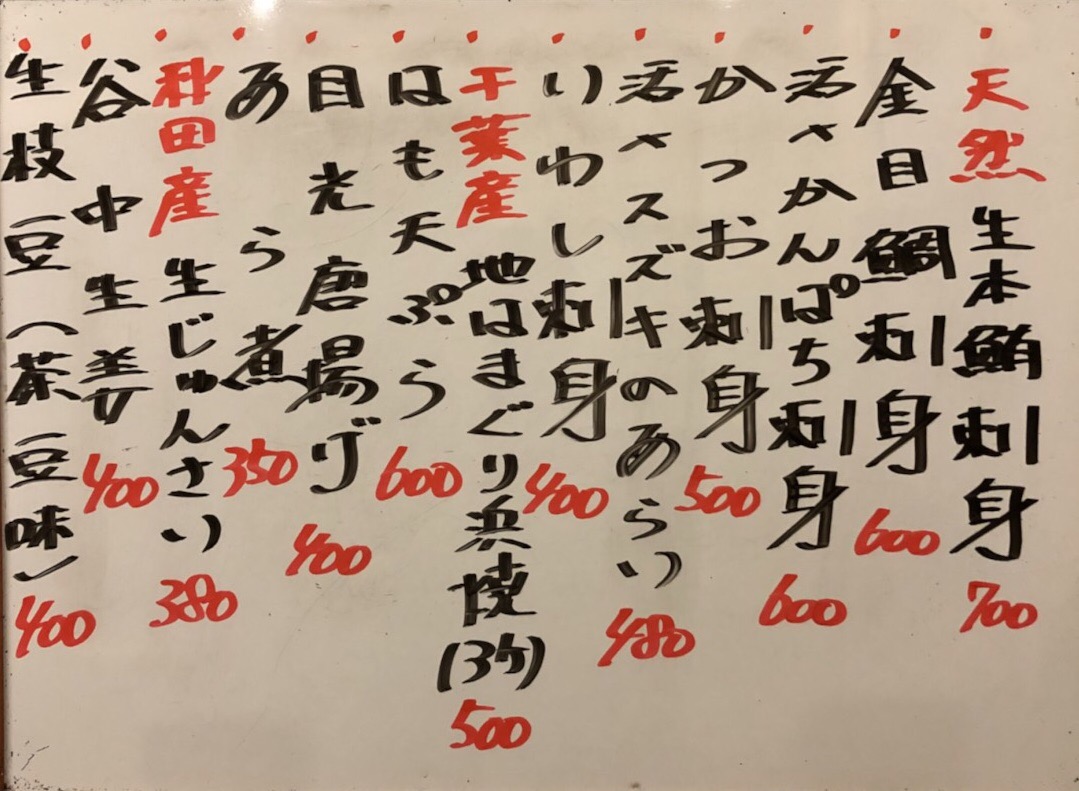 天然 生本鮪刺身 700
金目鯛刺身 600
活〆かんぱち刺身 600
かつお刺身 500
活〆スズキのあらい 480
いわし刺身 400
千葉産 地はまぐり浜焼(3ケ) 500
はも天ぷら 600
目光唐揚げ 400
あら煮 350
秋田産 生じゅんさい 380
谷中生姜 400
生枝豆(茶豆味) 400